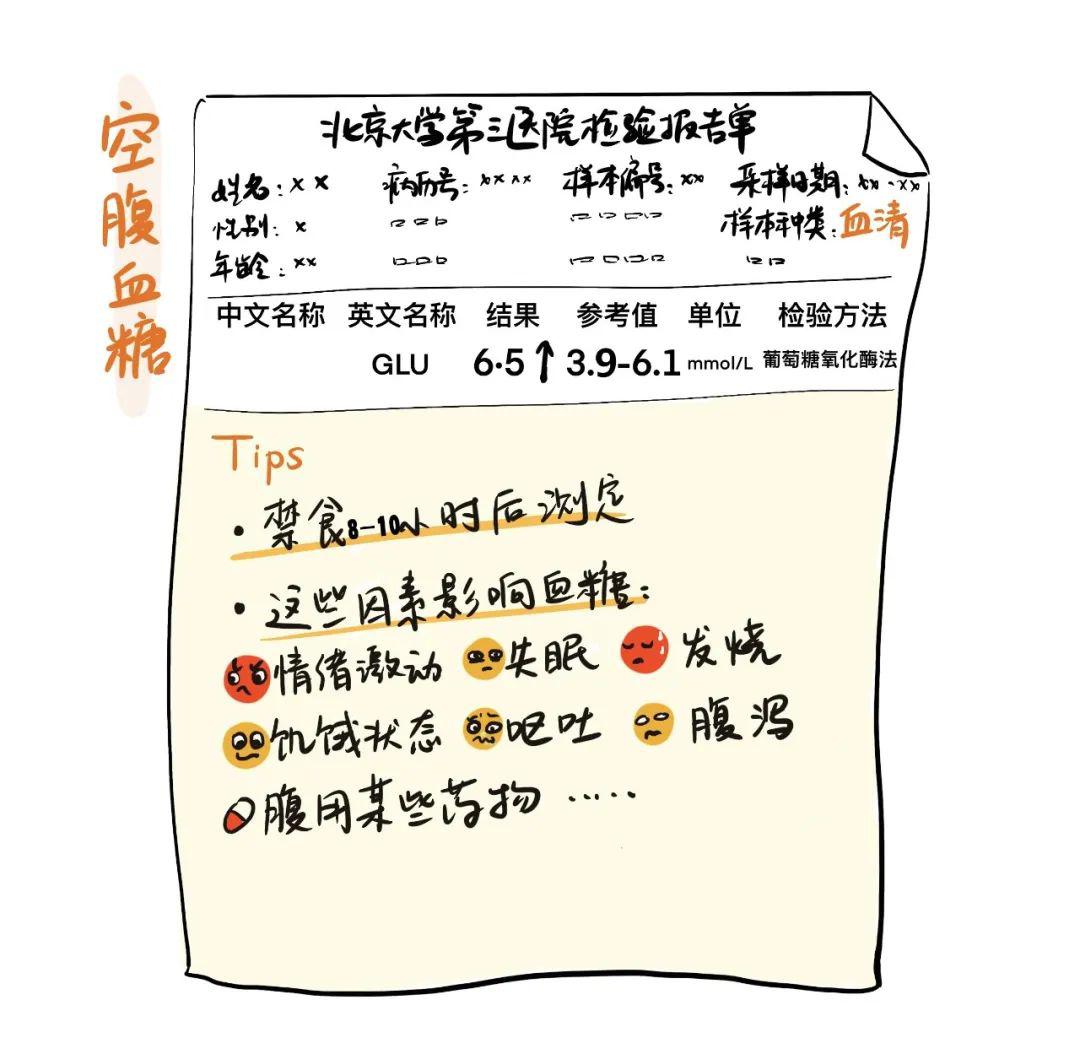 空腹血糖
北京大学第三医院检验报告单
姓名：×× 病历号：×××× 样本编号：×× 采样日期：××-××
性别：× 样本种类：血清
年龄：××
中文名称 英文名称 结果 参考值 单位 检验方法
GLU 6·5↑ 3.9-6.1 mmol/L 葡萄糖氧化酶法
Tips
·禁食8-10小时后测定
·这些因素影响血糖：
情绪激动 失眠 发烧
饥饿状态 呕吐 腹泻
腹用某些药物……